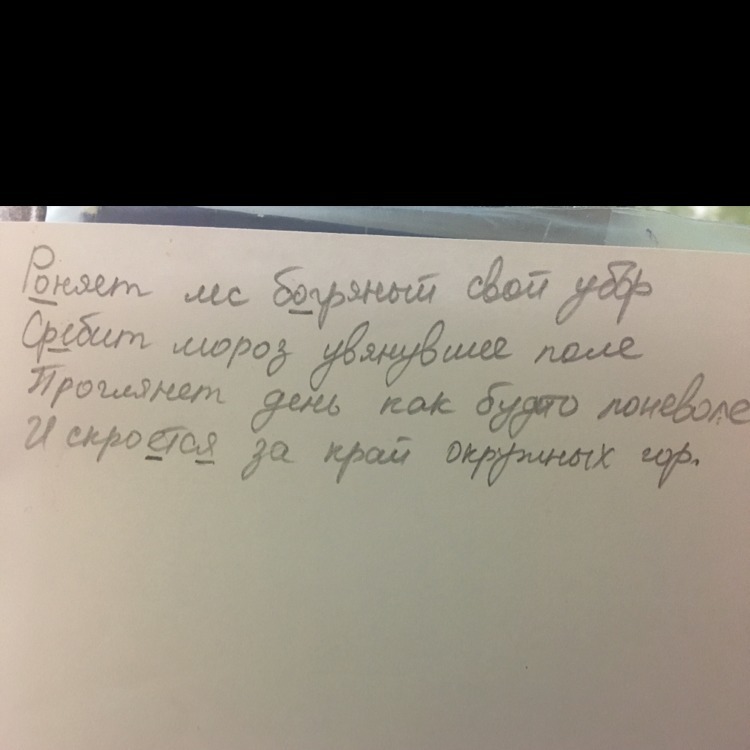 Роняет лес богряный свой убор
Сребит мороз увянувшее поле
Проглянет день как будто поневоле
И скроется за край окружных гор.